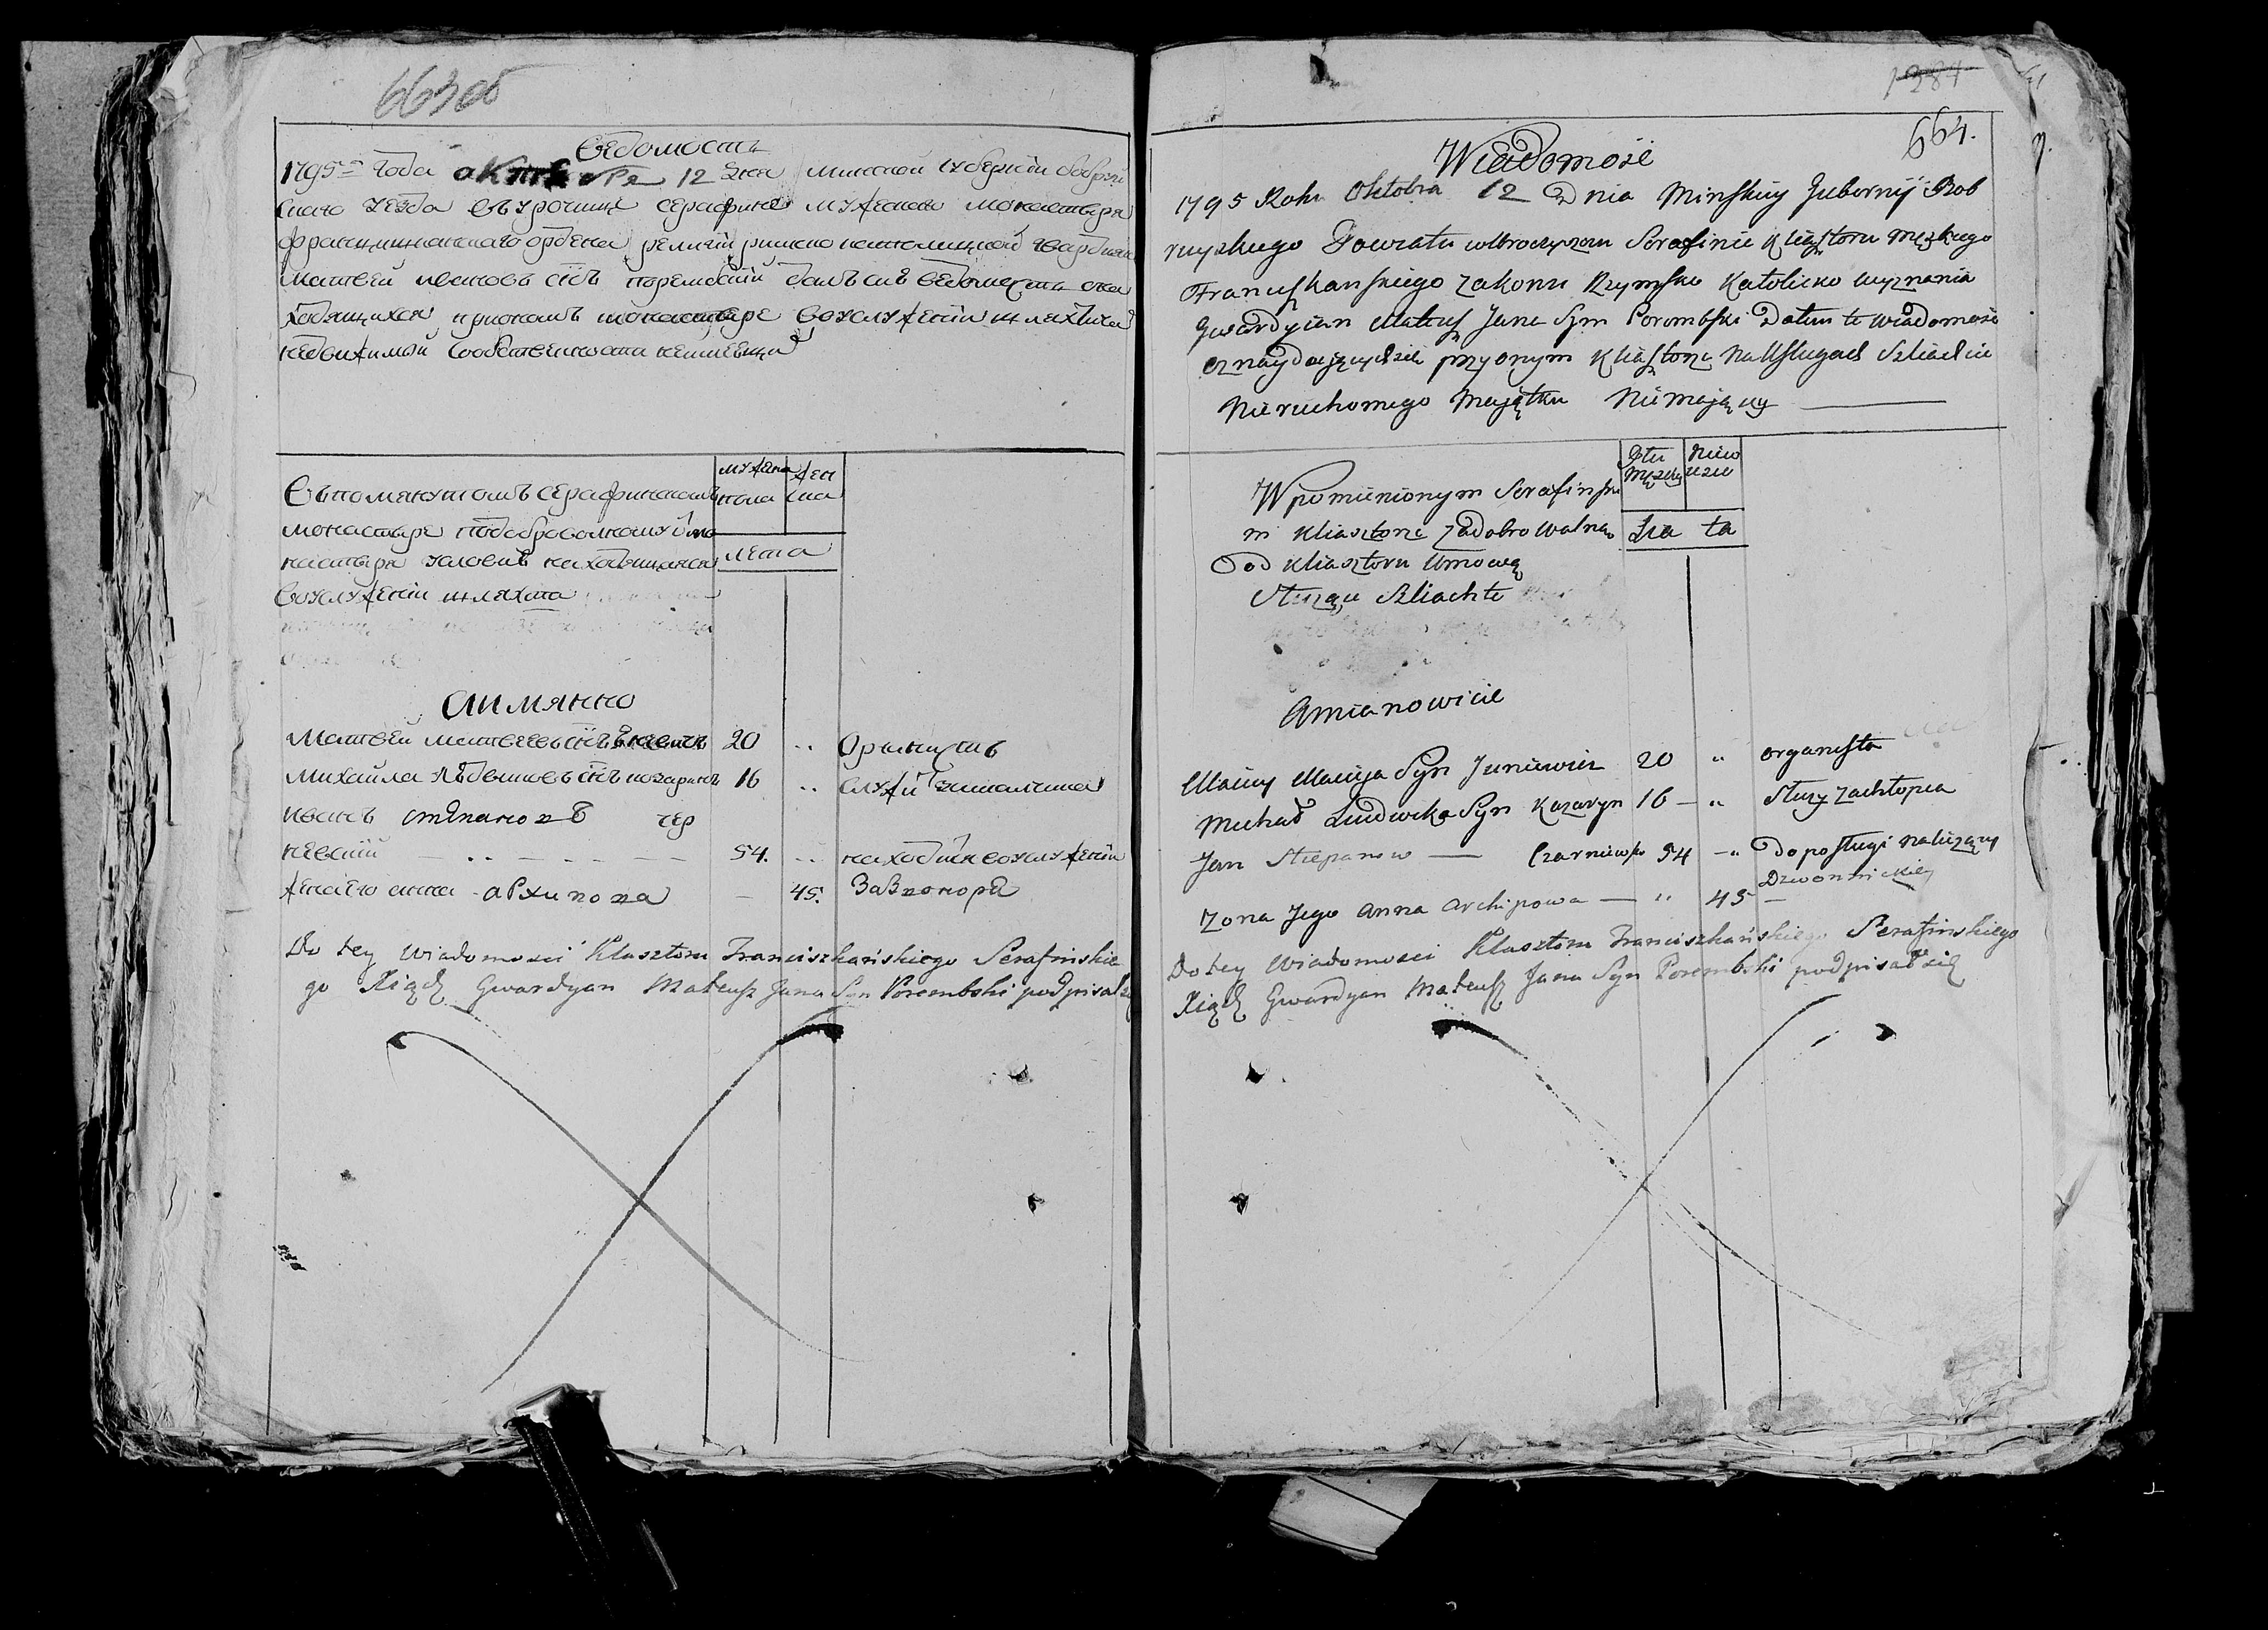 663об
Ведомость
1795го года октября 12 дня минской губернии бобруй
скаго уезда въ урочище серафине мужеского монастыря
францишканского ордена религии римско католицкой гвардиан
матвей ивановъ снъ порембский далъ сию ведомость о на
ходящихся при ономъ монастыре во услужении шляхтича
недвижимой собственности неимеющей
мужска
пола
жен
ска
лета
Въ помянутомъ серафинскомъ
монастыре по добровольному
настыря условию находящаяся
во услужении шляхта
А имянно
Матвей матвеевъ снъ 20 .. органистъ
михайла людвиковъ снъ казаринъ 16 ..
иванъ степановъ чер
невский 54. .. находится во услужении
жена его анна архипова — 45. звонора
Do tey Wiadomosci Klasztoru Franciszkańskiego Serafinskie
go Xiądz Gwardyan Mateusz Jana Syn Porembski podpisal się
1284
664.
Wiadomość
1795 Roku Oktobra 12 Dnia Minskiey Gubernij Bob
ruyskiego Powiatu w Uroczyszczu Serafinie Kliasztoru męzkiego
Franciszkanskiego zakonu Rzymsko Katolicko wyznania
Gwardyian Mateusz Jana Syn Porombski Datem te wiadomość
o znaydujących się przy onym Kliasztorze na Usługach Szliachcie
Nieruchomego Majątku Niemającey
Płci
Męzkiey
Niew
iesci
Lia ta
W pomienionym Serafinskim
m Kliasztorze za dobrowolną
Od Kliasztoru Umową
Służąca Szliachte
Amianowicie
Maciey Macieja Syn Juniewicz 20 " organista
Michał Ludwika Syn Kazaryn 16 — " służy za chłopca
Jan Stiepanow — Czarniewski 54 —" Do posługi należący
Dzwonnickiey
Zona Jego Anna Archipowa — " 45 —
Do tey Wiadomosci Klasztoru Franciszkańskiego Serafinskiego
Xiądz Gwardyan Mateusz Jana Syn Porembski podpisał się